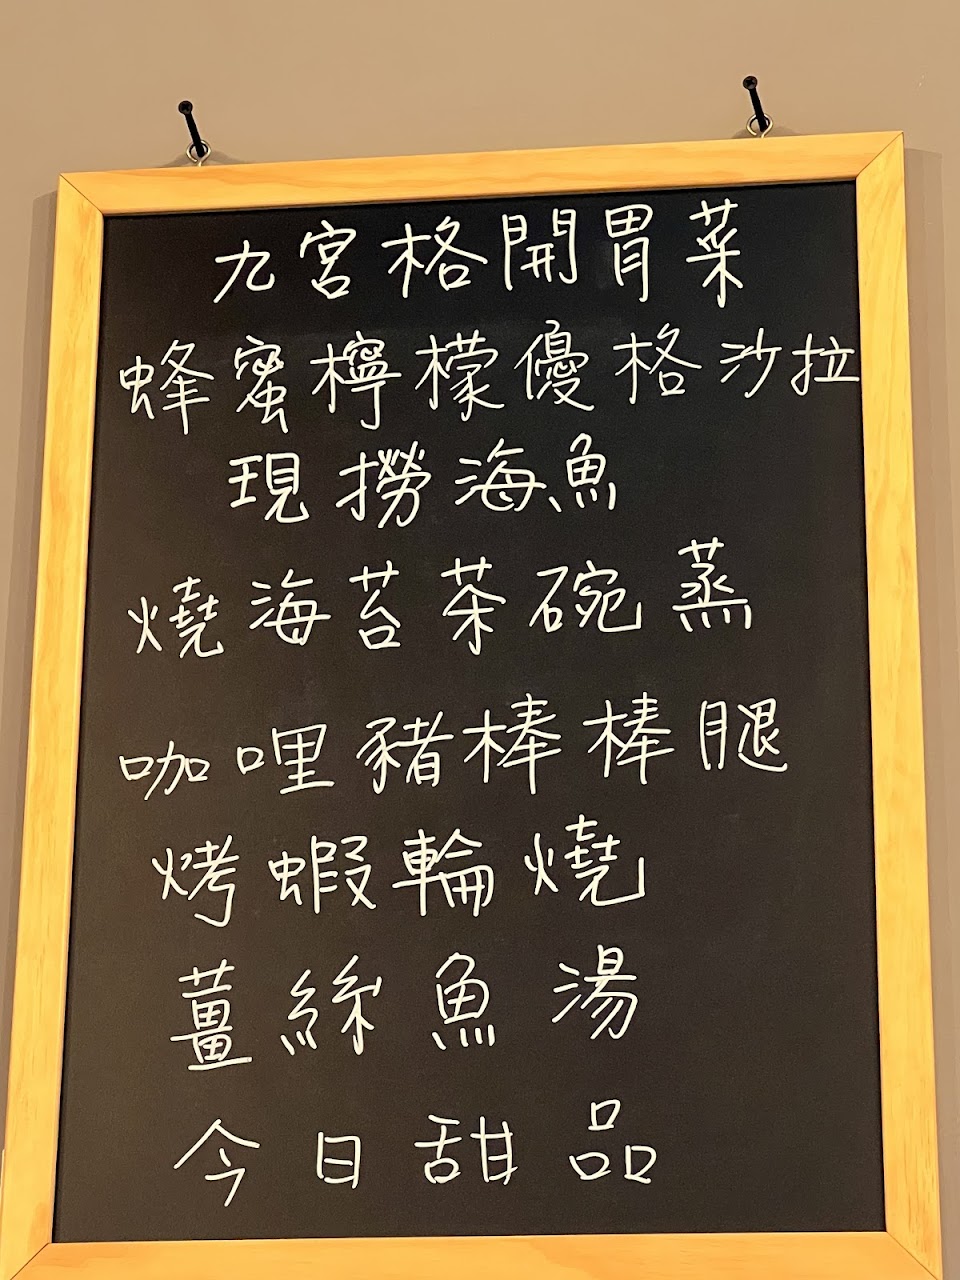 九宮格開胃菜
蜂蜜檸檬優格沙拉
現撈海魚
燒海苔茶碗蒸
咖哩豬棒棒腿
烤蝦輪燒
薑絲魚湯
今日甜品